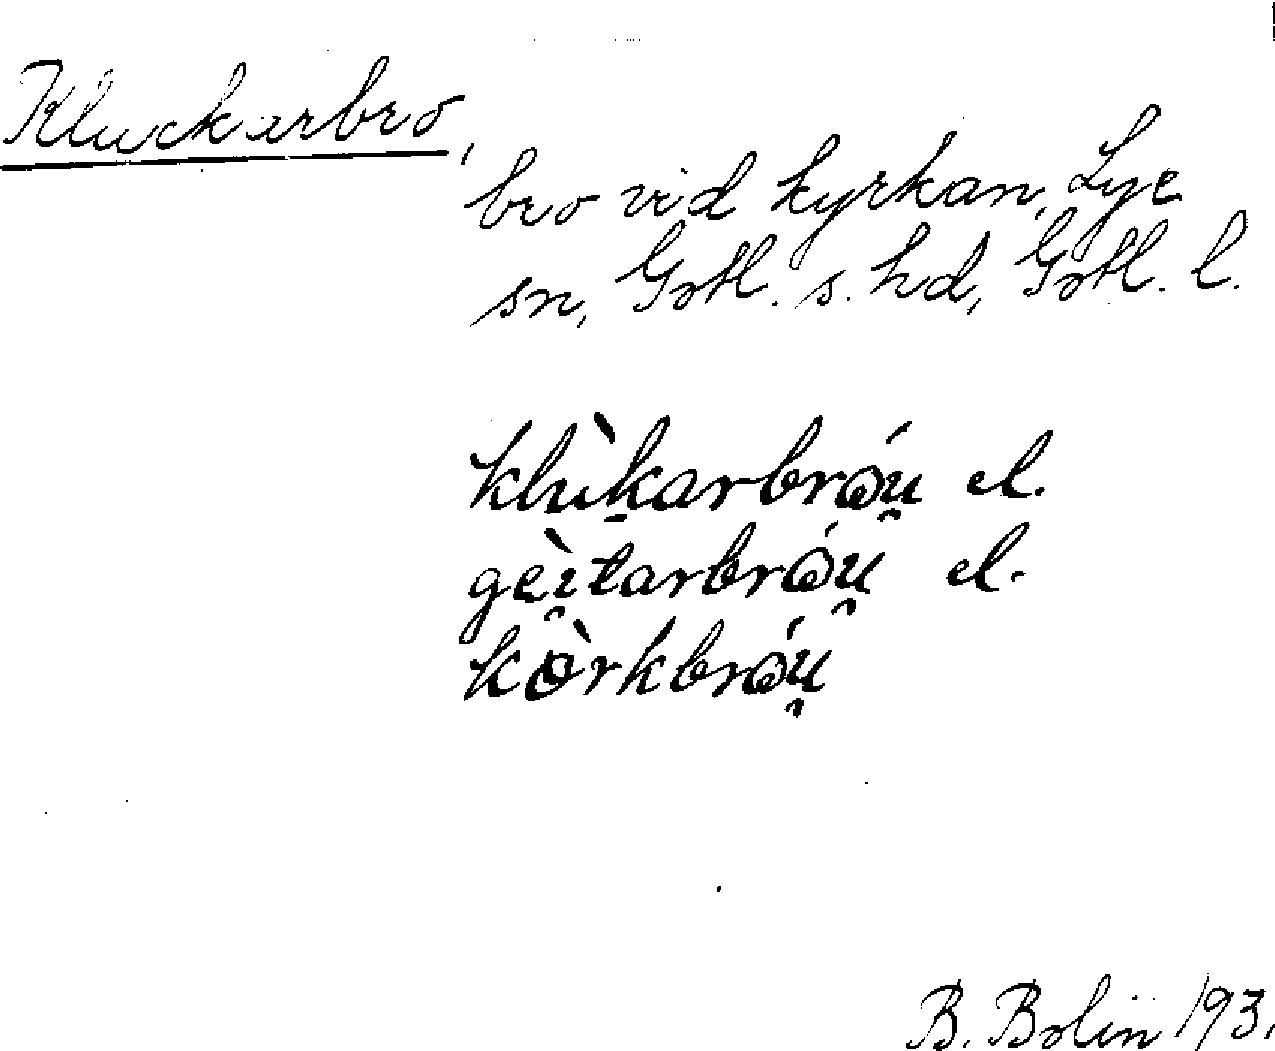 Kluckarbro,
bro vid kyrkan, Lye
sn, Gotl. s. hd, Gotl. l.
klùkarbrωú̯ el.
gèi̯tarbrωú̯ el.
kòrkbrωú̯
B. Bolin 193